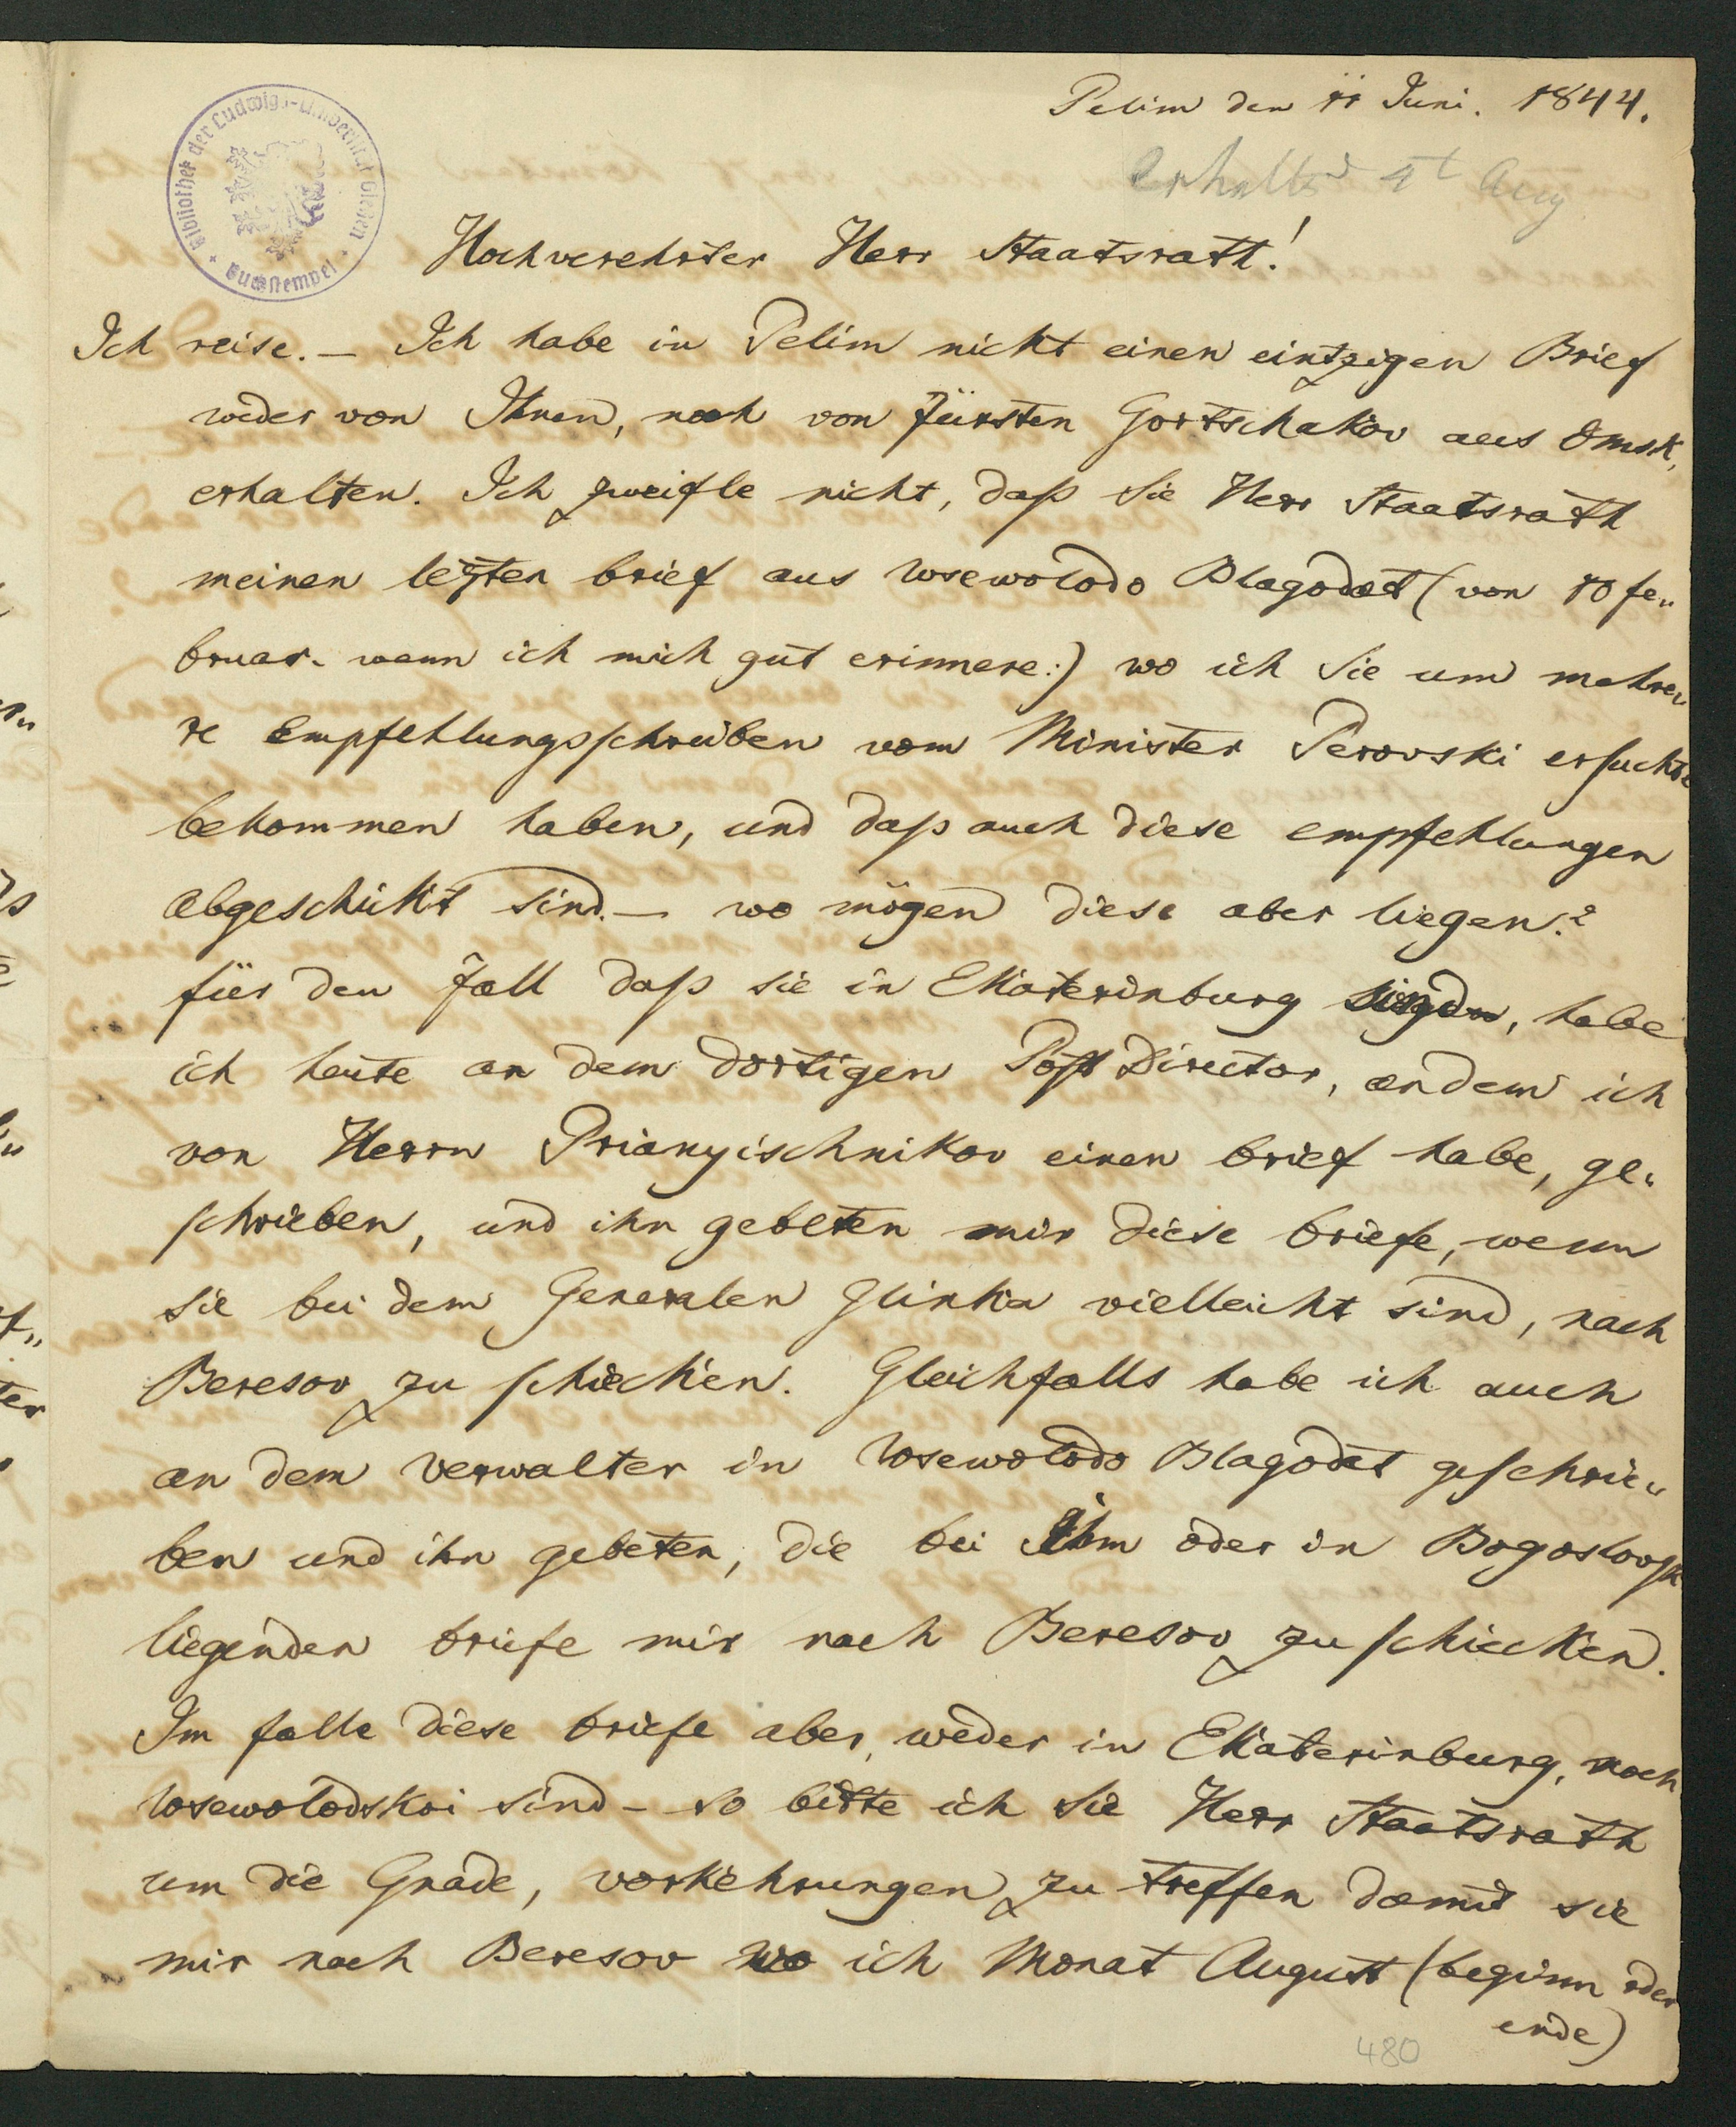 Pelim den 11 Juni. 1844.
Erhalten 4t Aug
Bibliothek der Ludwigs-Universität Gießen
Buchstempel
Hochverehrter Herr Staatsrath!
Ich reise. — Ich habe in Pelim nicht einen eintzigen Brief
weder von Ihnen, noch von Fürsten Gortschakov aus Omsk,
erhalten. Ich zweifle nicht, daß Sie Herr Staatsrath
meinen letzten brief aus Wsewolodo Blagodat (von 10 fe„
bruar. wann ich mich gut erinnere:) wo ich Sie um mehre„
re Empfehlungsschreiben vom Minister Perovski ersuchte
bekommen haben, und daß auch diese empfehlungen
abgeschickt sind. — wo mögen diese aber liegen?
für den Fall daß sie in Ekaterinburg, habe
ich heute an dem dortigen Post Director, an dem ich
von Herrn Prianyischnikov einen brief habe, ge„
schrieben, und ihn gebeten mir diese briefe, wenn
sie bei dem Generalen Glinka vielleicht sind, nach
Beresov zu schicken. Gleichfalls habe ich auch
an dem Verwalter in Wsewolodo Blagodat geschrie„
ben und ihn gebeten, die bei ihm oder in Bogoslovsk
liegenden briefe mir nach Beresov zu schicken.
Im falle diese briefe aber, weder in Ekaterinburg, noch
Wsewolodskoi sind – so bitte ich Sie Herr Staatsrath
um die Gnade, vorkehrungen zu treffen damit sie
mir nach Beresov wo ich Monat August (beginn oder
ende)
480